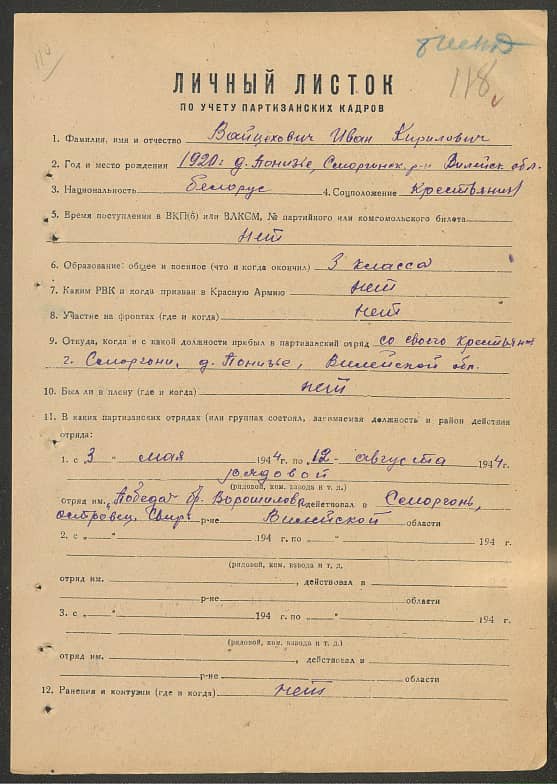 118
ЛИЧНЫЙ ЛИСТОК
ПО УЧЕТУ ПАРТИЗАНСКИХ КАДРОВ
1. Фамилия, имя и отчество Вайцехович Иван Кирилович
2. Год и место рождения 1920 г. д. Понизье, Сморгонск. р-н Вилейск обл.
3. Национальность белорус 4. Соцположение Крестьянин
5. Время поступления в ВКП(б) или ВЛКСМ, № партийного или комсомольского билета
нет
6. Образование: общее и военное (что и когда окончил) 3 класса
7. Каким РВК и когда призван в Красную Армию нет
8. Участие на фронтах (где и когда) нет
9. Откуда, когда и с какой должности прибыл в партизанский отряд со своего крестьян
г. Сморгони, д. Понизье, Вилейской обл.
10. Был ли в плену (где и когда) нет
11. В каких партизанских отрядах (или группах состоял, занимаемая должность и район действия
отряда:
1. с 3 " мая 1944 г. по 12 августа 1944 г.
рядовой
(рядовой, ком. взвода и т. д.)
отряд им. Победа бр. Ворошилова, действовал в Сморгонь,
островец. Свирь р-не Вилейской области
2. с „ " 194 г. по „ " 194 г.
(рядовой, ком. взвода и т. д.)
отряд им. , действовал в
р-не области
3. с „ " 194 г. по „ " 194 г.
(рядовой, ком. взвода и т. д.)
отряд им. , действовал в
р-не области
12. Ранения и контузии (где и когда) нет